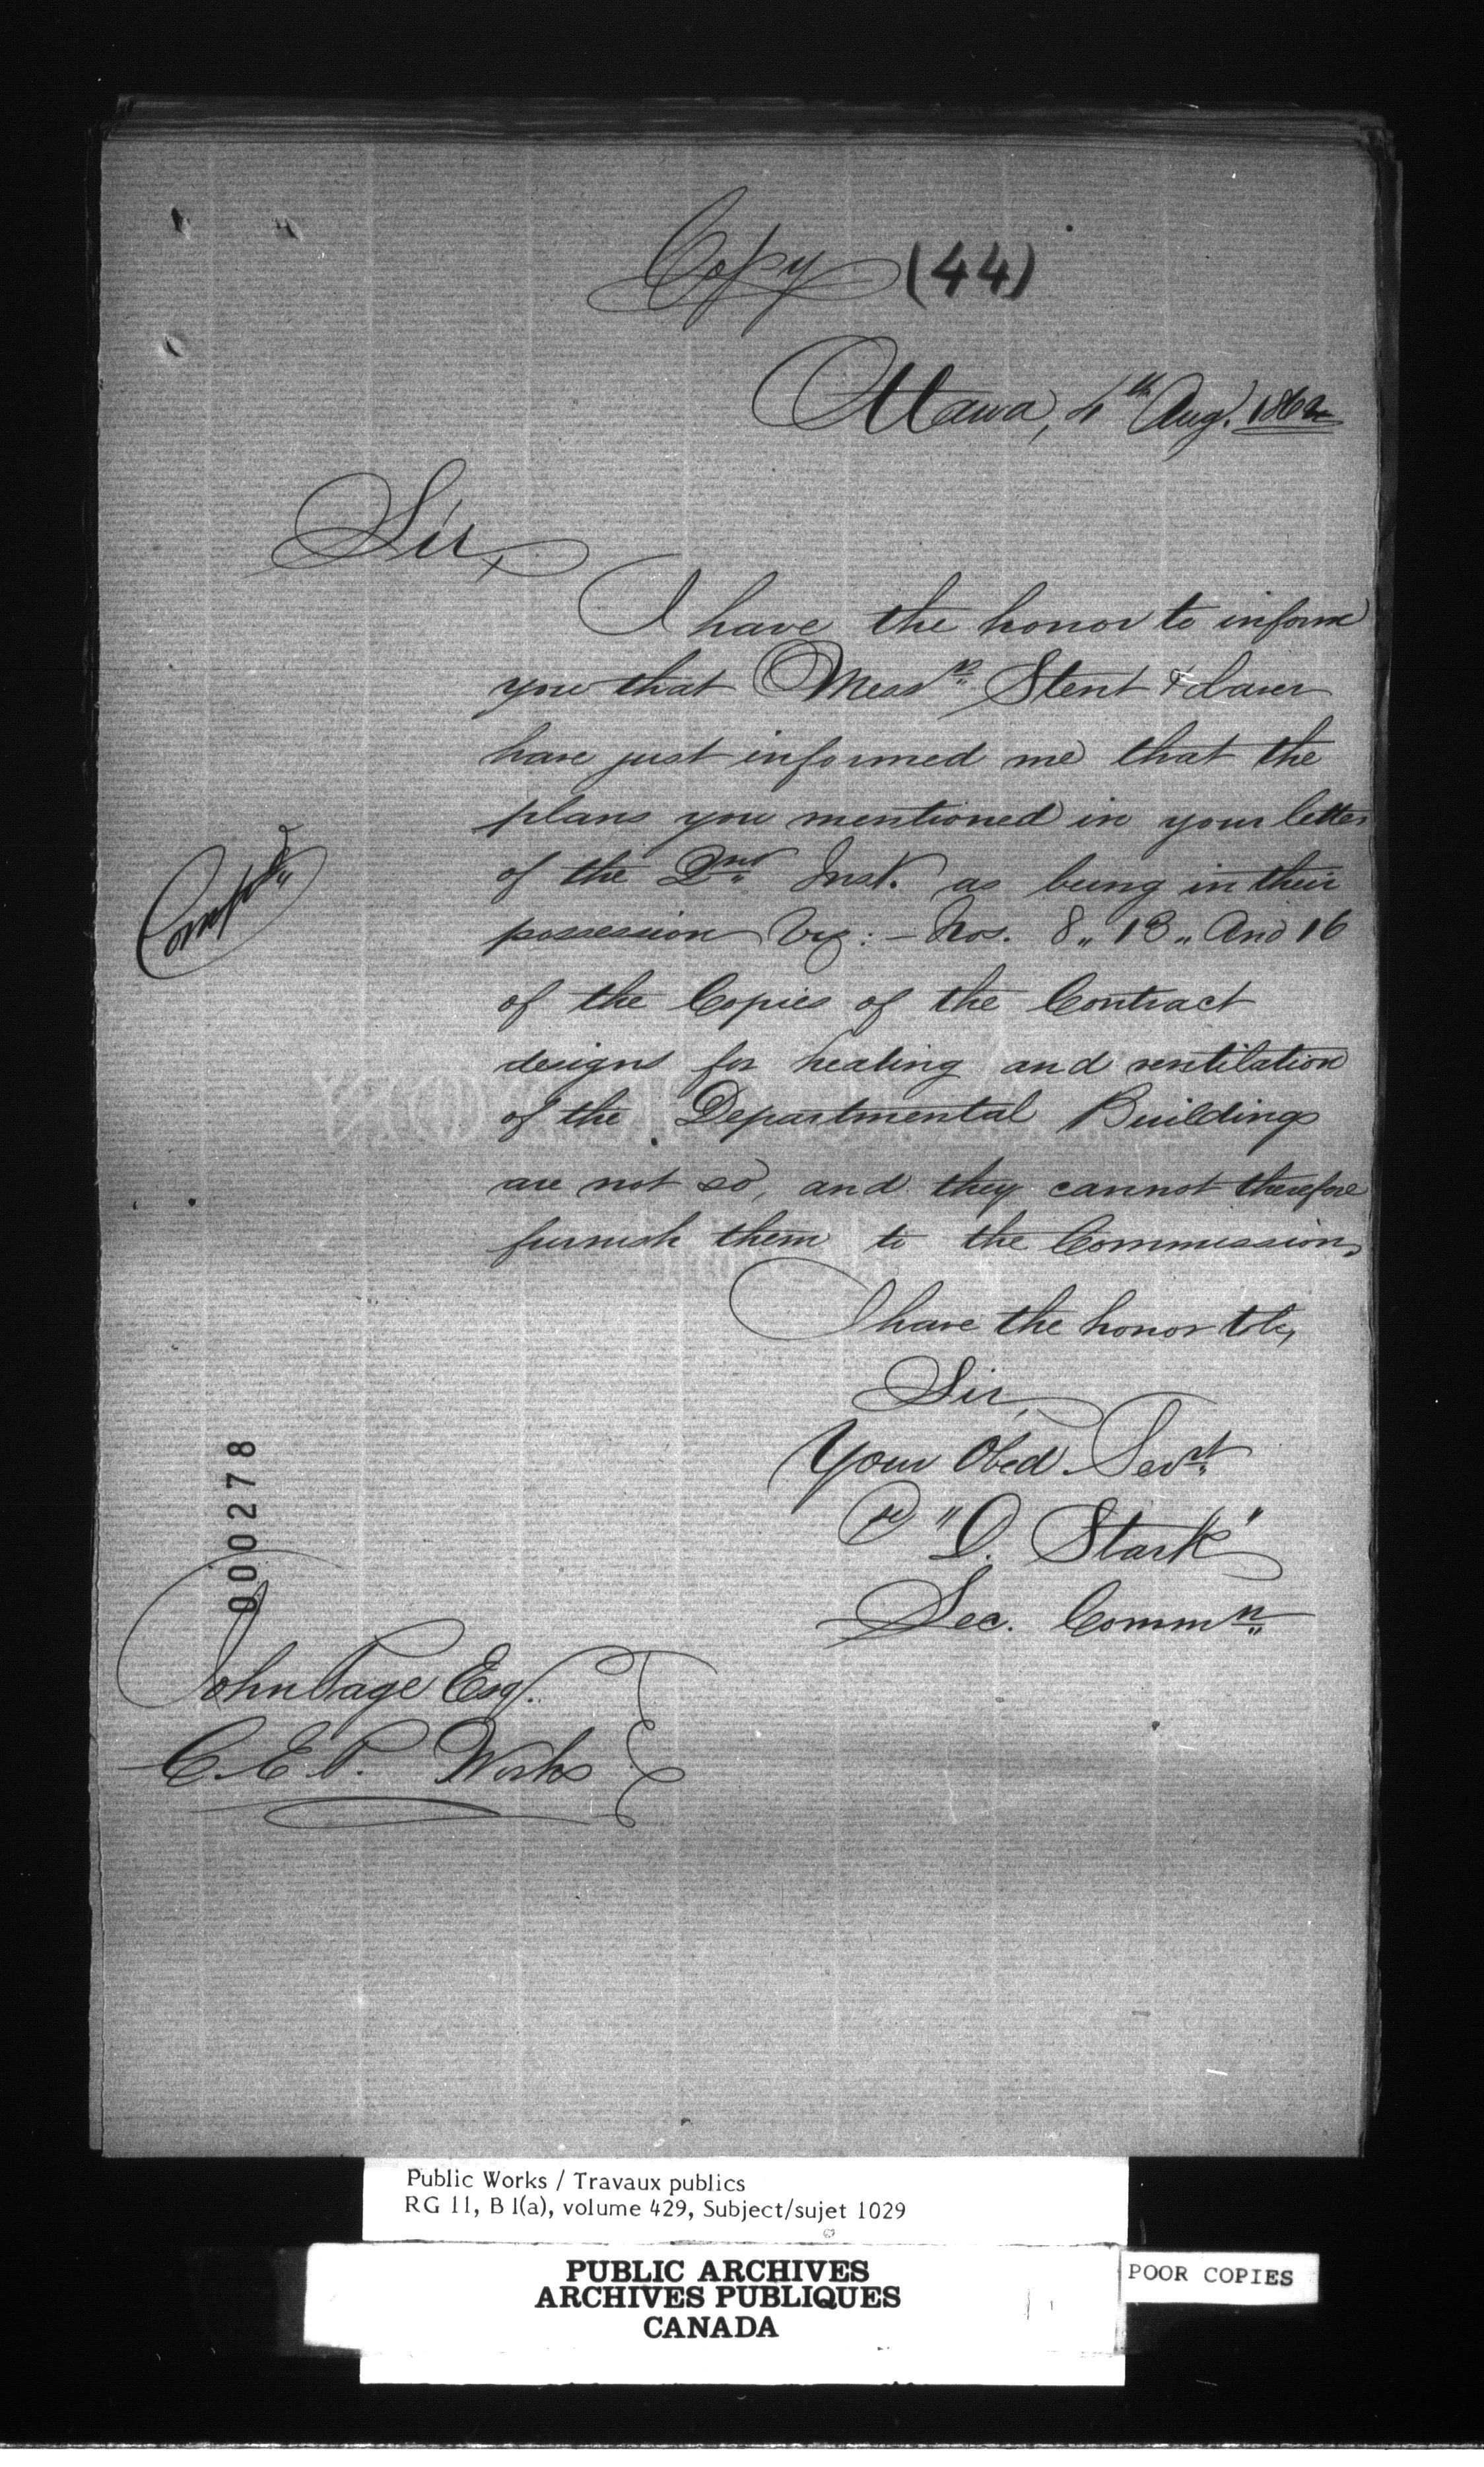 Copy (44)
Ottawa, 4th Aug. 1862
Sir,
I have the honor to inform
you that Messrs. Stent & Laver
have just informed me that the
plans you mentioned in your letter
of the 2nd Inst. as being in their
possession Viz: - Nos. 8 " 13 " And 16
of the Copies of the Contract
designs for heating and ventilation
of the Departmental Buildings
are not so, and they cannot therefore
furnish them to the Commission,
Comp'd
I have the honor to be,
Sir,
Your Obed. Servt
"D. Stark"
Sec. Commn
000278
John Page Esq.
C. E. P. Works
Public Works / Travaux publics
RG 11, B 1(a), volume 429, Subject/sujet 1029
PUBLIC ARCHIVES
ARCHIVES PUBLIQUES
CANADA
POOR COPIES